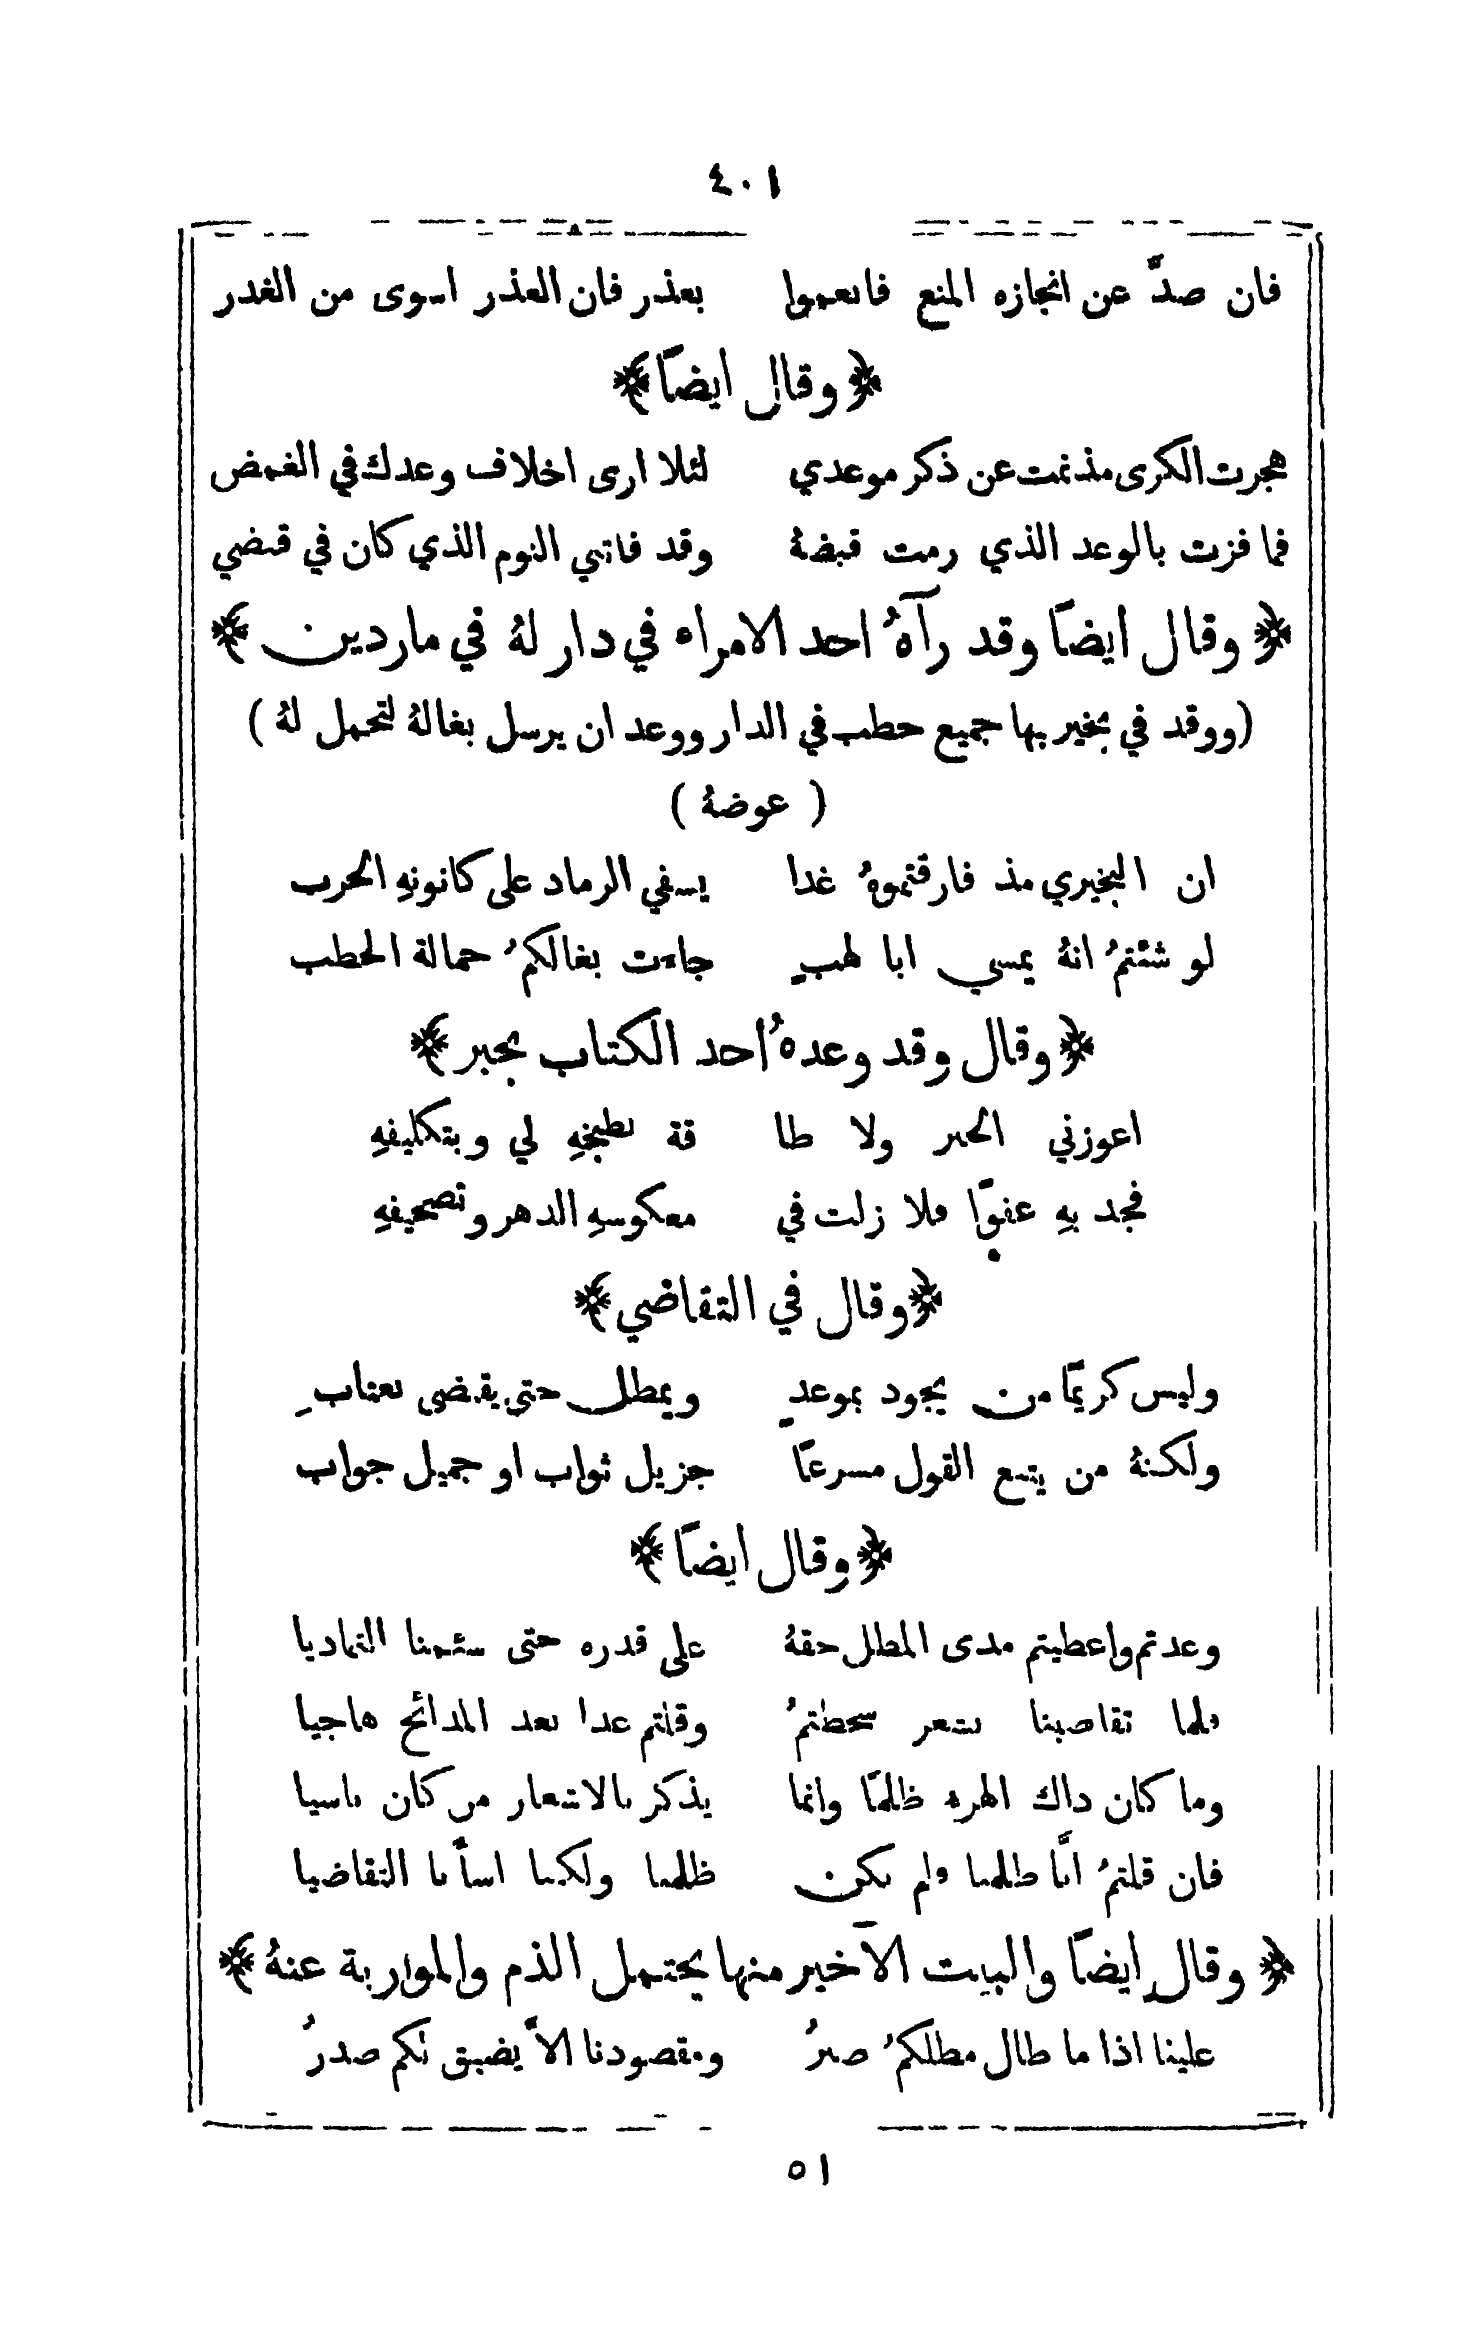 ٤٠١
فان صدَّ عن انجازه المنع فانعموا بعذر فان العذر اسوى من الغدر
﴿ وقال ايضاً ﴾
هجرت الكرى مذ نمت عن ذكر موعدي لئلا ارى اخلاف وعدك في الغمض
فما فزت بالوعد الذي رمت قبضهُ وقد فاتني النوم الذي كان في قبضي
﴿ وقال ايضاً وقد رآهُ احد الامراء في دار لهُ في ماردين ﴾
(ووقد في بخيريها جميع حطب في الدار ووعد ان يرسل بغالهُ لتحمل لهُ )
( عوضهُ )
ان البخيري مذ فارقتموهُ غدا يسفي الرماد على كانونهِ الحرب
لو شئتمُ انهُ يمسي ابا لهبٍ جاءت بغالكمُ حمالة الحطب
﴿ وقال وقد وعدهُ احد الكتاب بحبر ﴾
اعوزني الحبر ولا طا قة بطبخهِ لي وبتكليفهِ
فجد بهِ عفوًا فلا زلت في معكوسهِ الدهر وتصحيفهِ
﴿ وقال في التقاضي ﴾
وليس كريمًا من يجود بموعدٍ ويمطل حتى يقتضى بعتابِ
ولكنهُ من يتبع القول مسرعًا جزيل ثواب او جميل جواب
﴿ وقال ايضاً ﴾
وعدتم واعطيتم مدى المطل حقهُ على قدره حتى سئمنا التماديا
فلما تقاضينا بشعر سخطتمُ وقلتم غدا بعد المدائح هاجيا
وما كان ذاك الهزء ظلمًا وانما يذكر بالاشعار من كان ناسيا
فان قلتمُ انَّا ظلمنا ولم نكن ظلمنا ولكنا اسأنا التقاضيا
﴿ وقال ايضاً والبيت الآخير منها يحتمل الذم والمواربة عنهُ ﴾
علينا اذا ما طال مطلكمُ صبرُ ومقصودنا الاَّ يضيق لكم صدرُ
٥١